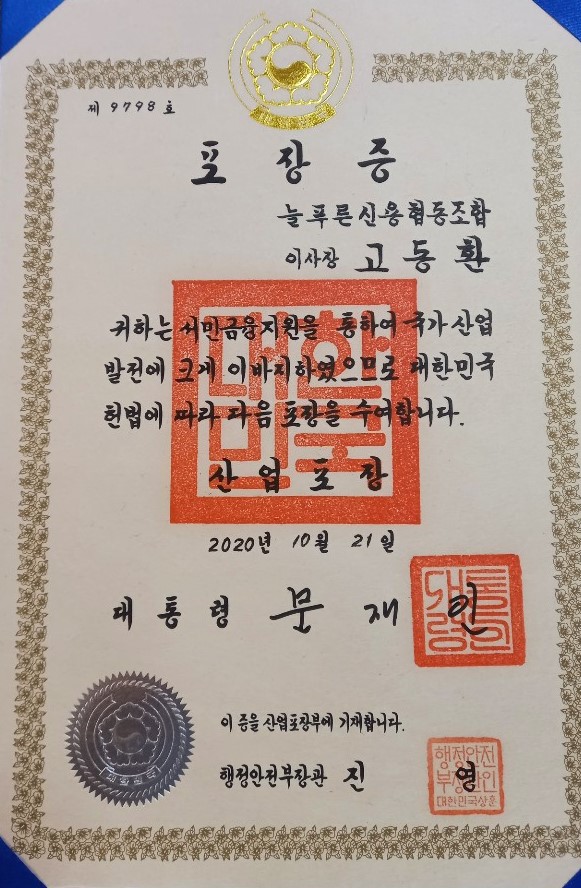 제 9798 호
포장증
늘푸른신용협동조합
이사장 고동환
귀하는 서민금융지원을 통하여 국가산업
발전에 크게 이바지하였으므로 대한민국
헌법에 따라 다음 포장을 수여합니다.
산업포장
2020년 10월 21일
대통령 문재인
이 증을 산업포장부에 기재합니다.
행정안전부장관 진영
행정안전
부장관인
대한민국상훈